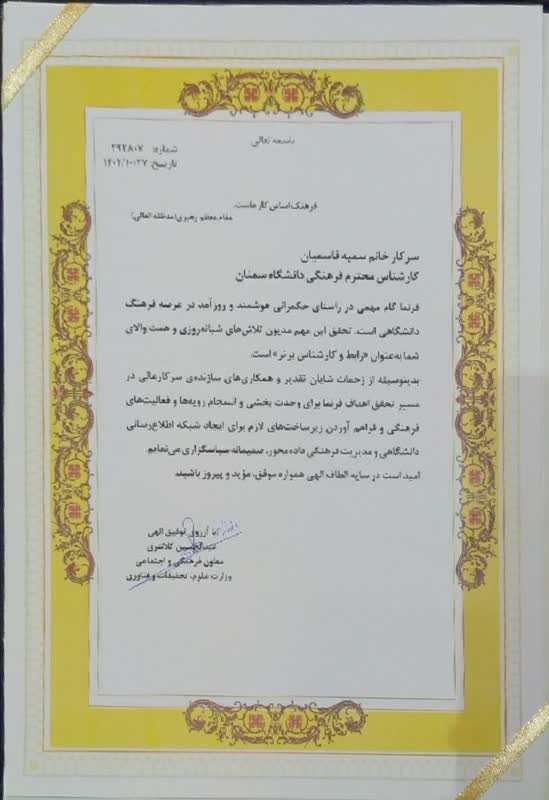 باسمه تعالی
شماره: ۲۹۲۸۰۷
تاریخ: ۱۴۰۲/۱۰/۲۷
فرهنگ اساس کار ماست.
مقام معظم رهبری(مدظله العالی)
سرکار خانم سمیه قاسمیان
کارشناس محترم فرهنگی دانشگاه سمنان
فرنما گام مهمی در راستای حکمرانی هوشمند و روزآمد در عرصه فرهنگ
دانشگاهی است. تحقق این مهم مدیون تلاش‌های شبانه‌روزی و همت والای
شما به‌عنوان «رابط و کارشناس برتر» است.
بدینوسیله از زحمات شایان تقدیر و همکاری‌های سازنده‌ی سرکارعالی در
مسیر تحقق اهداف فرنما برای وحدت بخشی و انسجام رویه‌ها و فعالیت‌های
فرهنگی و فراهم آوردن زیرساخت‌های لازم برای ایجاد شبکه اطلاع‌رسانی
دانشگاهی و مدیریت فرهنگی داده محور، صمیمانه سپاسگزاری می‌نمایم.
امید است در سایه الطاف الهی همواره موفق، مؤید و پیروز باشید.
با آرزوی توفیق الهی
عبدالحسین کلانتری
معاون فرهنگی و اجتماعی
وزارت علوم، تحقیقات و فناوری